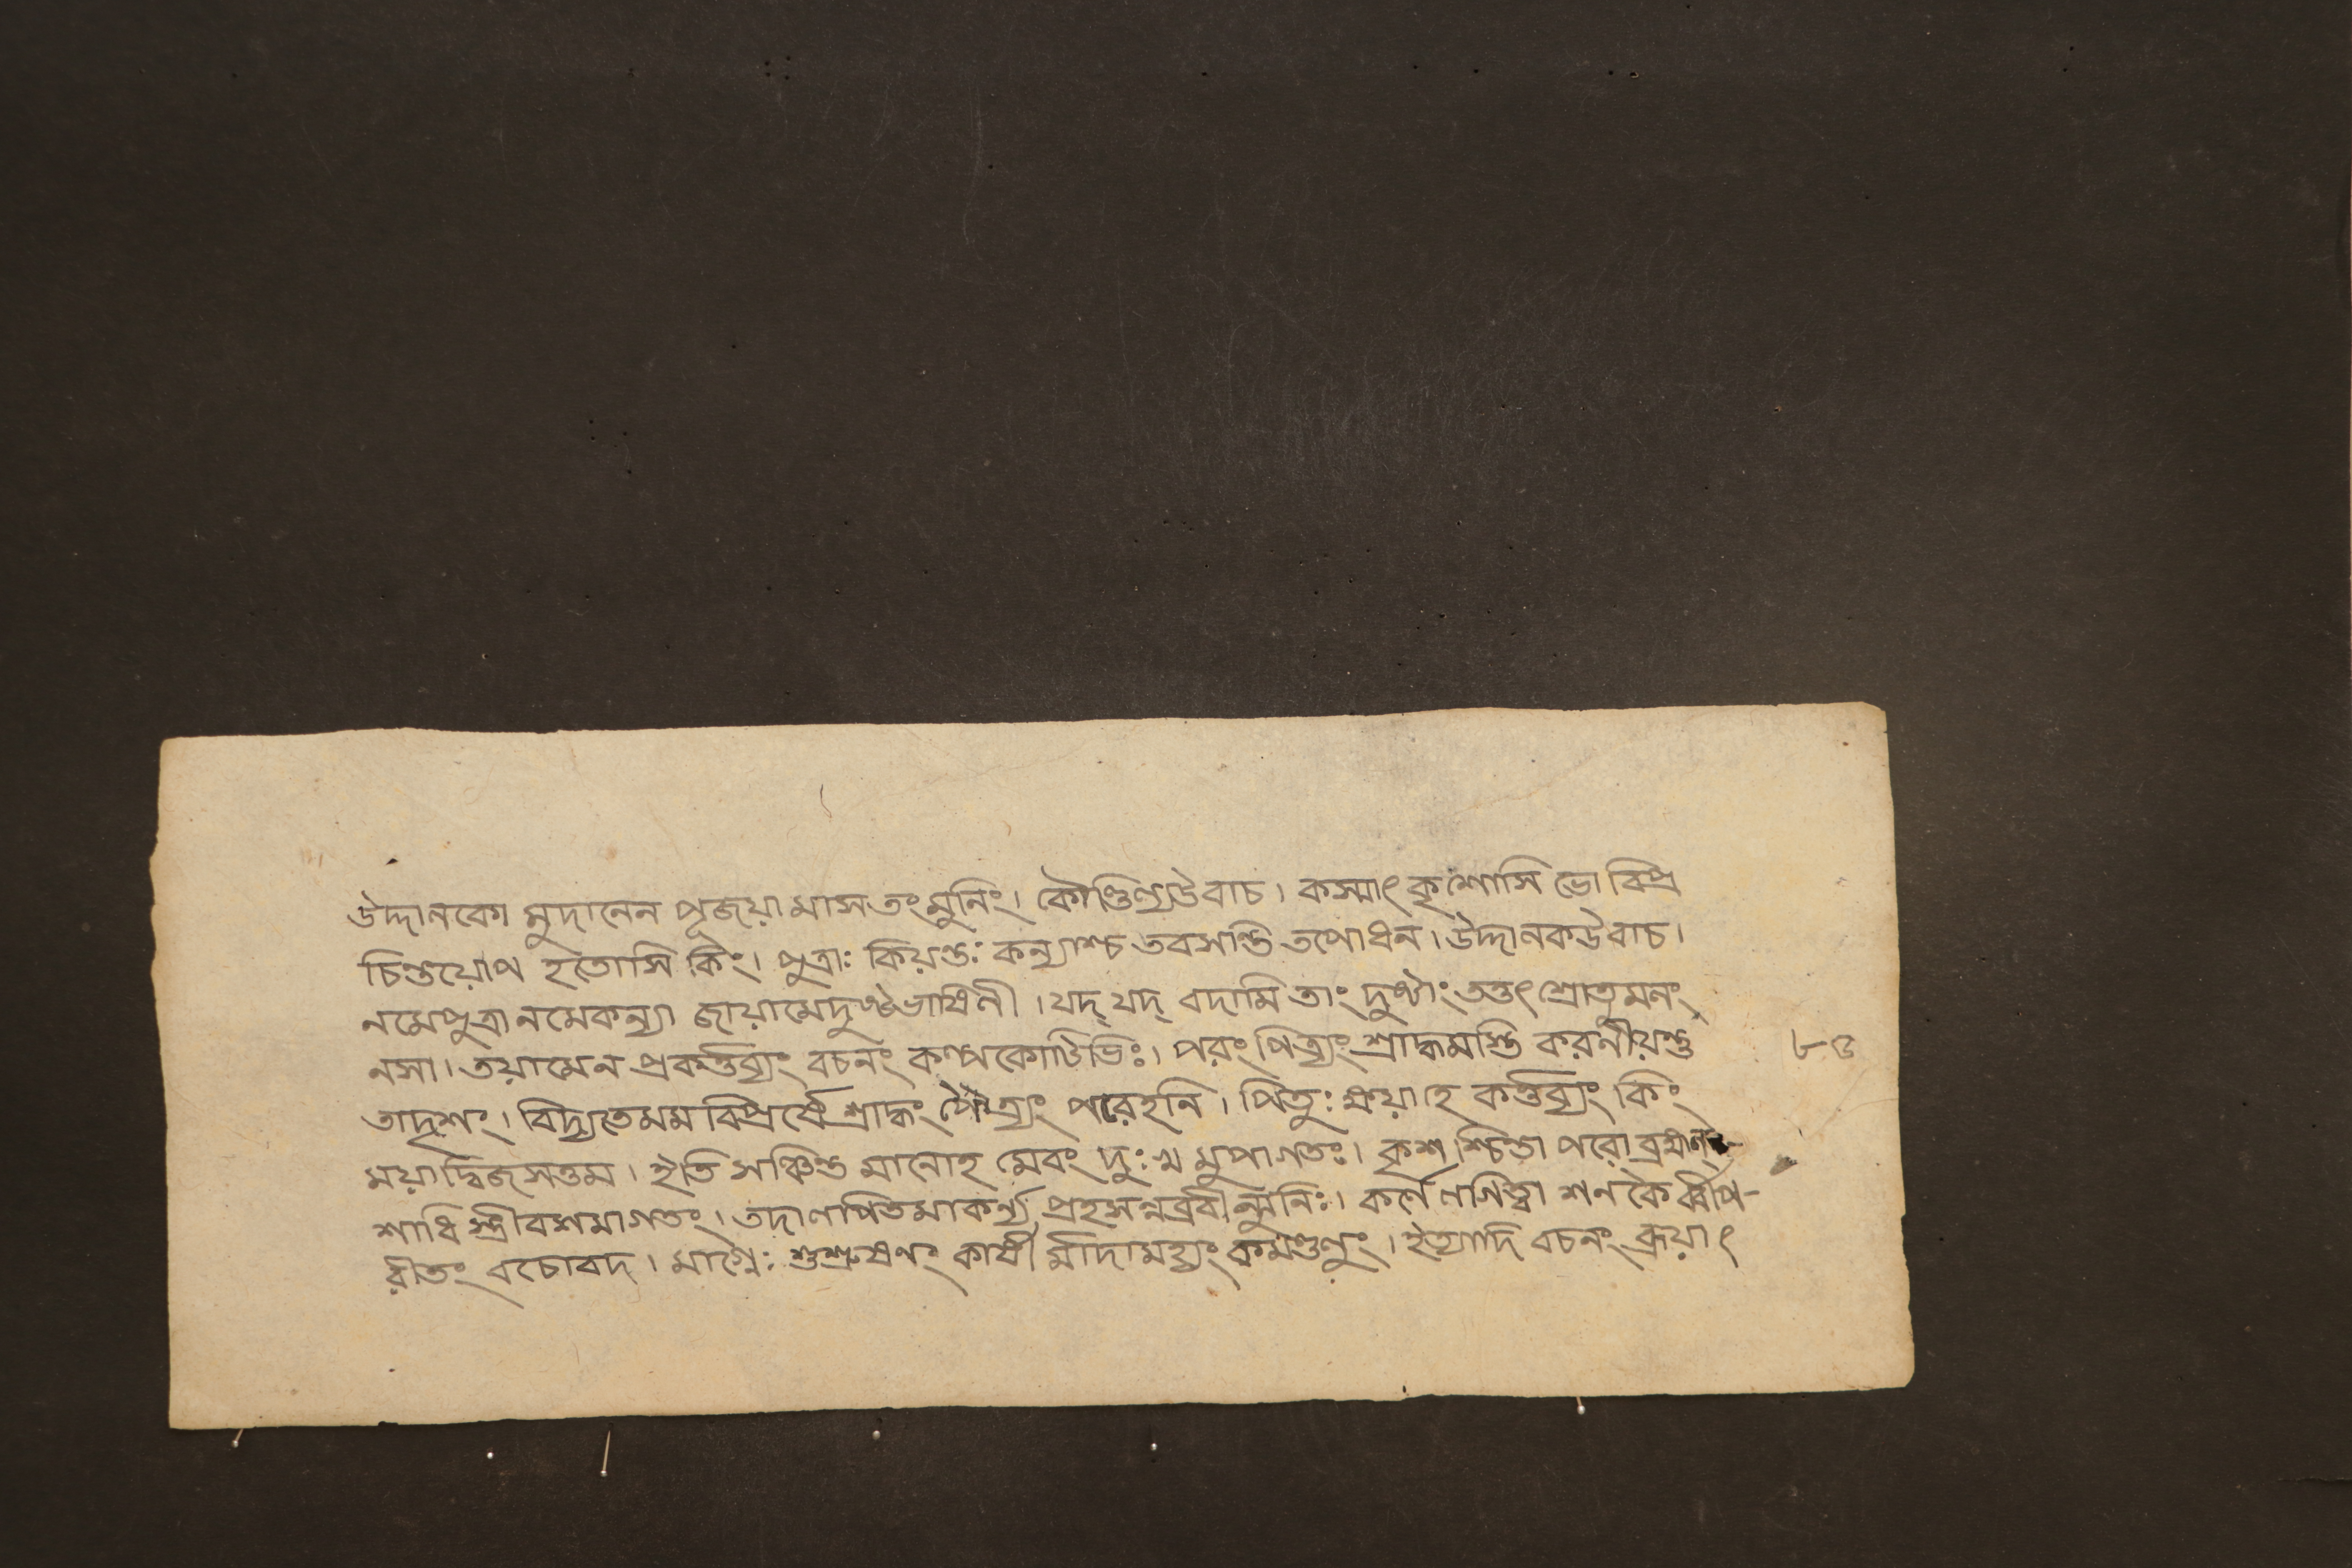 উদ্দানকো মুদানেন পূজয়ামাস তং মুনিং। কৌণ্ডিণ্যউবাচ। কস্মাৎ কৃশোসি ভো বিপ্র
চিন্তয়োপ হতোসি কিং। পুত্রাঃ কিয়ন্তঃ কন্যাশ্চ তবসন্তি তপোধন। উদ্দানকউবাচ।
নমেপুত্রা নমেকন্যা জায়ামেদুষ্টভাষিনী। যদ্ যদ্ বদামি তাং দুষ্টাং তত্তৎ শ্রোতুমনং
নসা। তয়ামেন প্রকর্ত্তব্যং বচনং কল্পকোটিভিঃ। পরং পিত্র্যং শ্রাদ্ধমস্তি করনীয়ন্তু
তাদৃশং। বিদ্যতেমম বিপ্রর্ষে শ্রাদ্ধং পৈত্র্যং পরেহনি। পিতুঃ ক্ষয়াহে কর্ত্তব্যং কিং
ময়াদ্বিজসত্তম। ইতি সঞ্চিন্ত মানোহ মেবং দুঃখ মুপাগতঃ। কৃশ শ্চিন্তা পরো ব্রহ্মণ্
শাধি স্ত্রীবশমাগতং। তদালপিতমাকর্ন্য প্রহসন্নব্রবীন্মুনিঃ। কর্ণে লগিত্বা শনকৈ র্ব্বিপ-
রীতং বচোবদ। মাগ্নেঃ শুশ্রুষণং কার্ষী র্মাদামহ্যং কমণ্ডলুং। ইত্যাদি বচনং ব্রূয়াৎ
৮৩